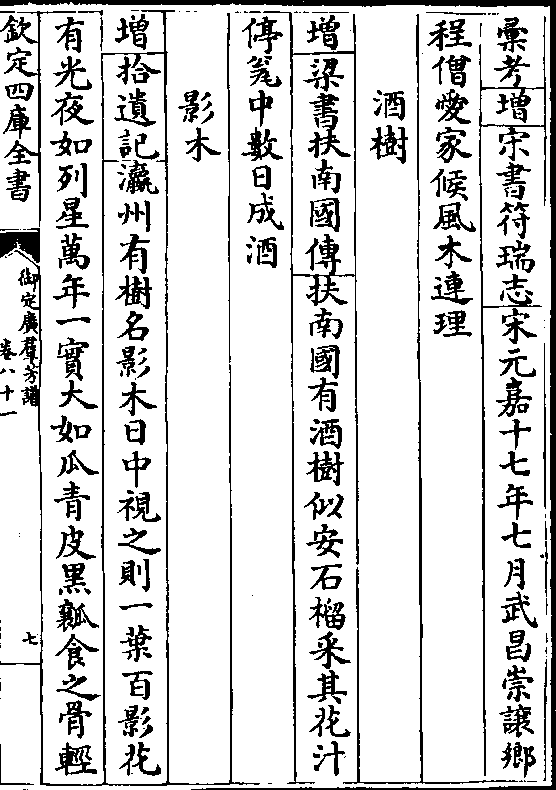 彚考增宋書符瑞志宋元嘉十七年七月武昌崇讓鄉
程僧愛家候風木連理
酒樹
增梁書扶南國傳扶南國有酒樹似安石榴采其花汁
停瓮中數日成酒
影木
增拾遺記瀛州有樹名影木日中視之則一葉百影花
有光夜如列星萬年一實大如瓜青皮黑瓤食之骨輕
欽定四庫全書
御定廣羣芳譜
卷八十一
七